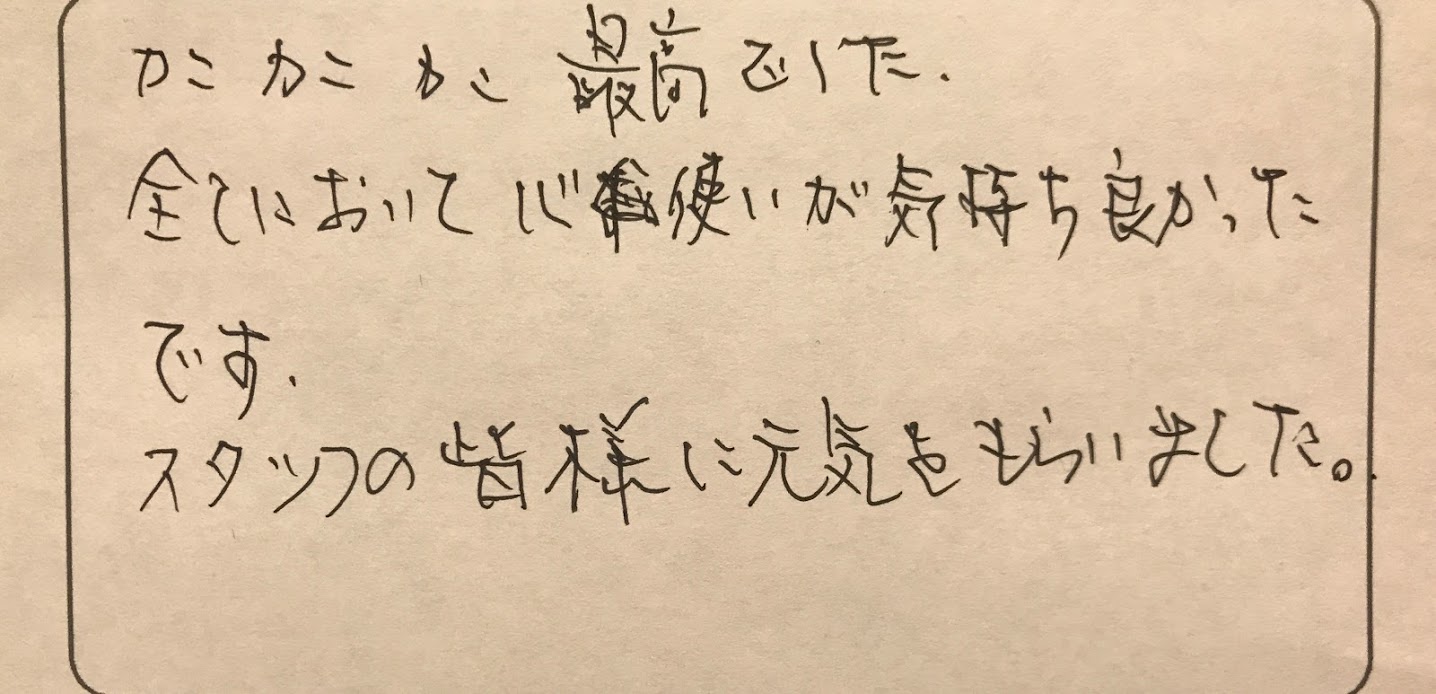 カニカニカニ最高でした.
全てにおいて心使いが気持ち良かった
です.
スタッフの皆様に元気をもらいました。